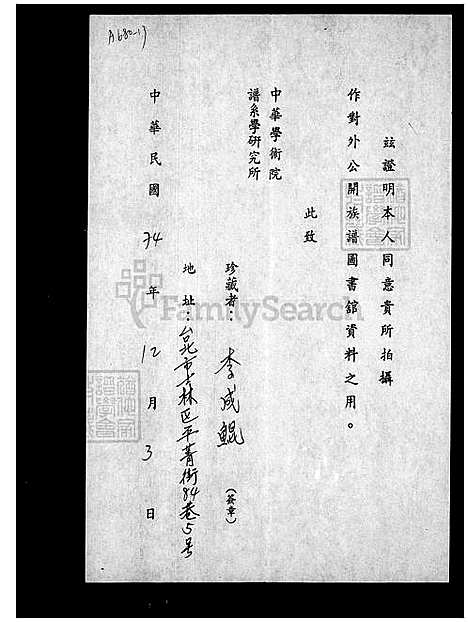 A680-13
茲證明本人同意貴所拍攝
作對外公開族譜圖書館資料之用。
此致
中華學術院
譜系學研究所
珍藏者：李成鯤（簽章）
地址：台北市士林區平菁街84巷5号
中華民國74年12月3日
FamilySearch